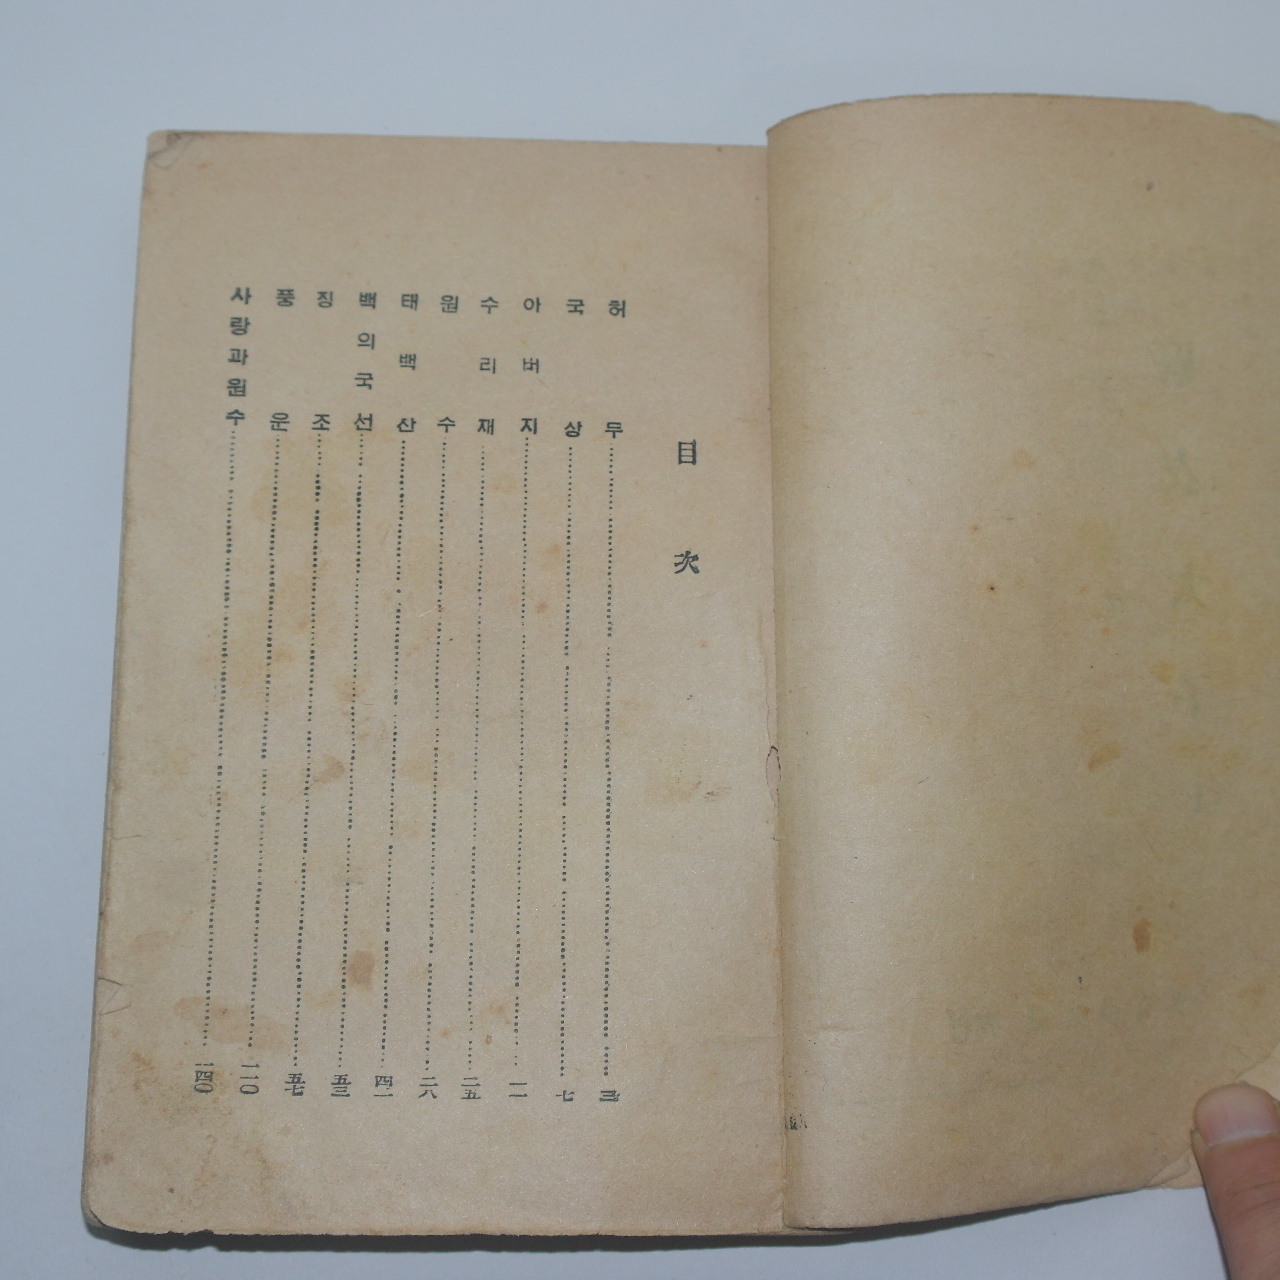 目次
허무……三
국상……七
아버지……一一
수리재……二五
원수……二八
태백산……四一
백의국선……五三
징조……五七
풍운……一一〇
사랑과원수……一四〇